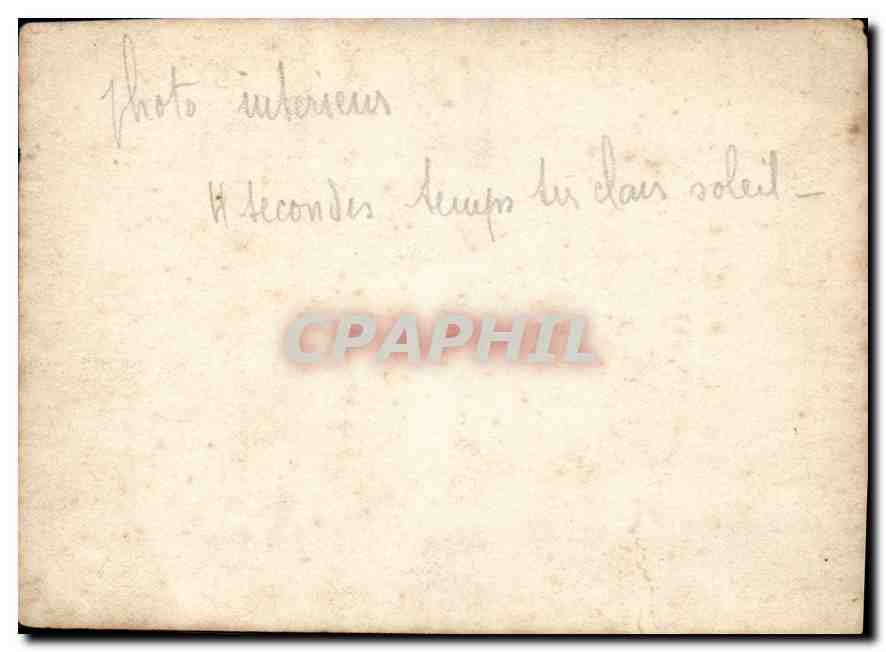 photo interieur
4 secondes temps très clair soleil —
CPAPHIL